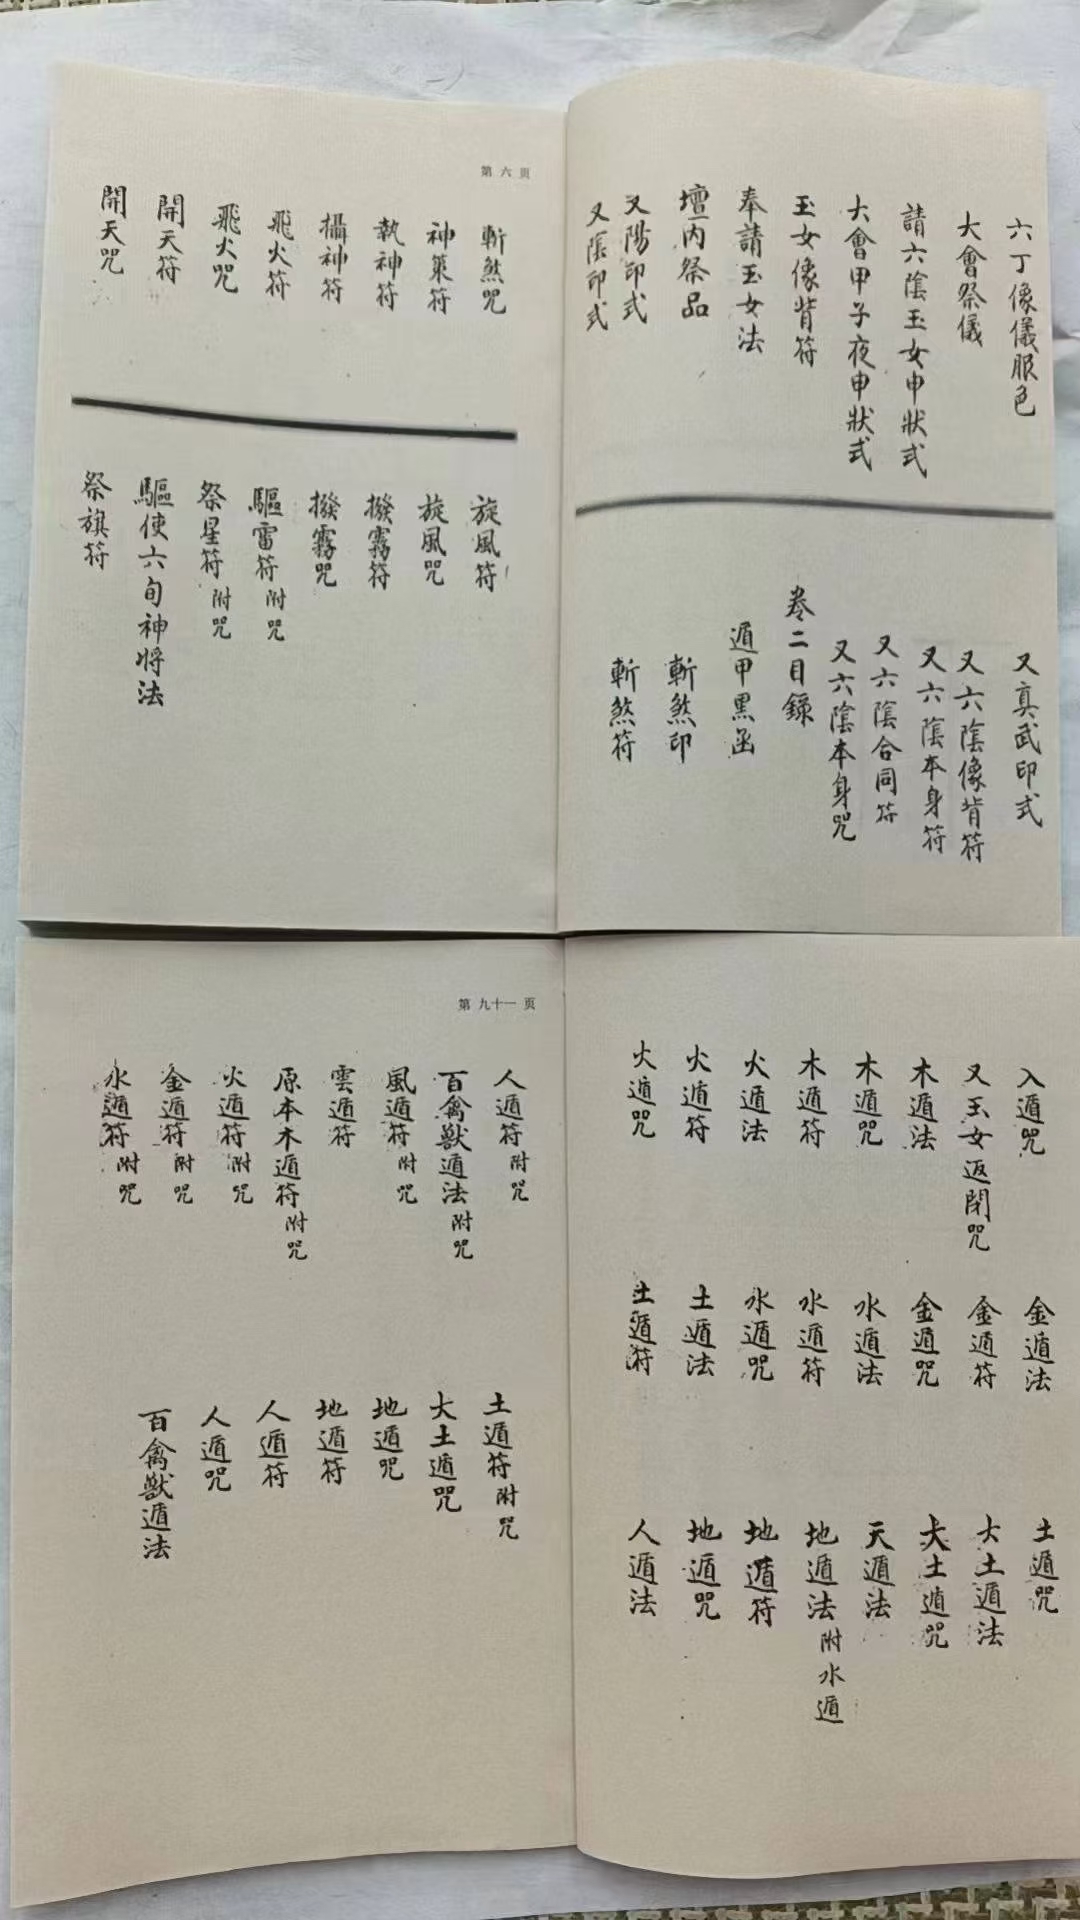 六丁像儀服色
大會祭儀
請六陰玉女申狀式
大會甲子夜申狀式
玉女像背符
奉請玉女法
壇内祭品
又陽印式
又陰印式
又真武印式
又六陰像背符
又六陰本身符
又六陰合同符
又六陰本身咒
卷二目錄
遁甲黑函
斬煞印
斬煞符
第六页
斬煞咒
神策符
執神符
攝神符
飛火符
飛火咒
開天符
開天咒
旋風符
旋風咒
撥霧符
撥霧咒
驅雷符附咒
祭星符附咒
驅使六旬神將法
祭旗符
入遁咒
又玉女返閉咒
木遁法
木遁咒
木遁符
火遁法
火遁符
火遁咒
金遁法
金遁符
金遁咒
水遁法
水遁符
水遁咒
土遁法
土遁符
土遁咒
大土遁法
大土遁咒
天遁法
地遁法附水遁
地遁符
地遁咒
人遁法
第九十一页
人遁符附咒
百禽獸遁法附咒
風遁符附咒
雲遁符
原本木遁符附咒
火遁符附咒
金遁符附咒
水遁符附咒
土遁符附咒
大土遁咒
地遁咒
地遁符
人遁符
人遁咒
百禽獸遁法